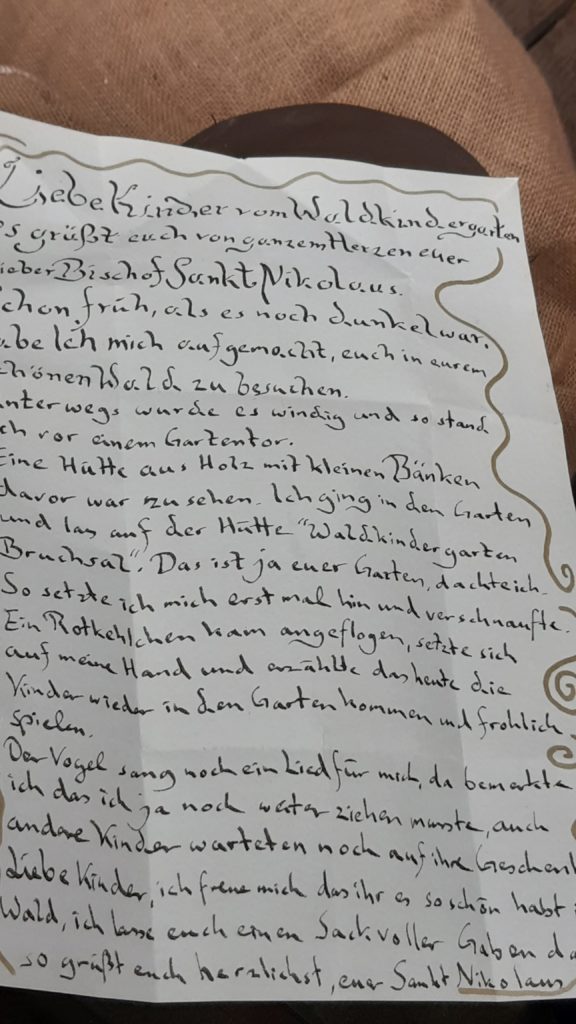 Liebe Kinder vom Waldkindergarten
es grüßt euch von ganzem Herzen euer
lieber Bischof Sankt Nikolaus.
Schon früh, als es noch dunkel war,
habe Ich mich aufgemacht, euch in eurem
schönen Wald zu besuchen.
Unterwegs wurde es windig und so stand
ich vor einem Gartentor.
Eine Hütte aus Holz mit kleinen Bänken
davor war zu sehen. Ich ging in den Garten
und las auf der Hütte "Waldkindergarten
Bruchsal". Das ist ja euer Garten, dachte ich.
So setzte ich mich erst mal hin und verschnaufte.
Ein Rotkehlchen kam angeflogen, setzte sich
auf meine Hand und erzählte das heute die
Kinder wieder in den Garten kommen und frohlich
spielen.
Der Vogel sang noch ein Lied für mich, da bemerkte
ich das ich ja noch weiter ziehen musste, auch
andere Kinder warteten noch auf ihre Geschenk
Liebe Kinder, ich freue mich das ihr es so schön habt
Wald, ich lasse euch einen Sack voller Gaben da
so grüßt euch herzlichst, euer Sankt Nikolaus